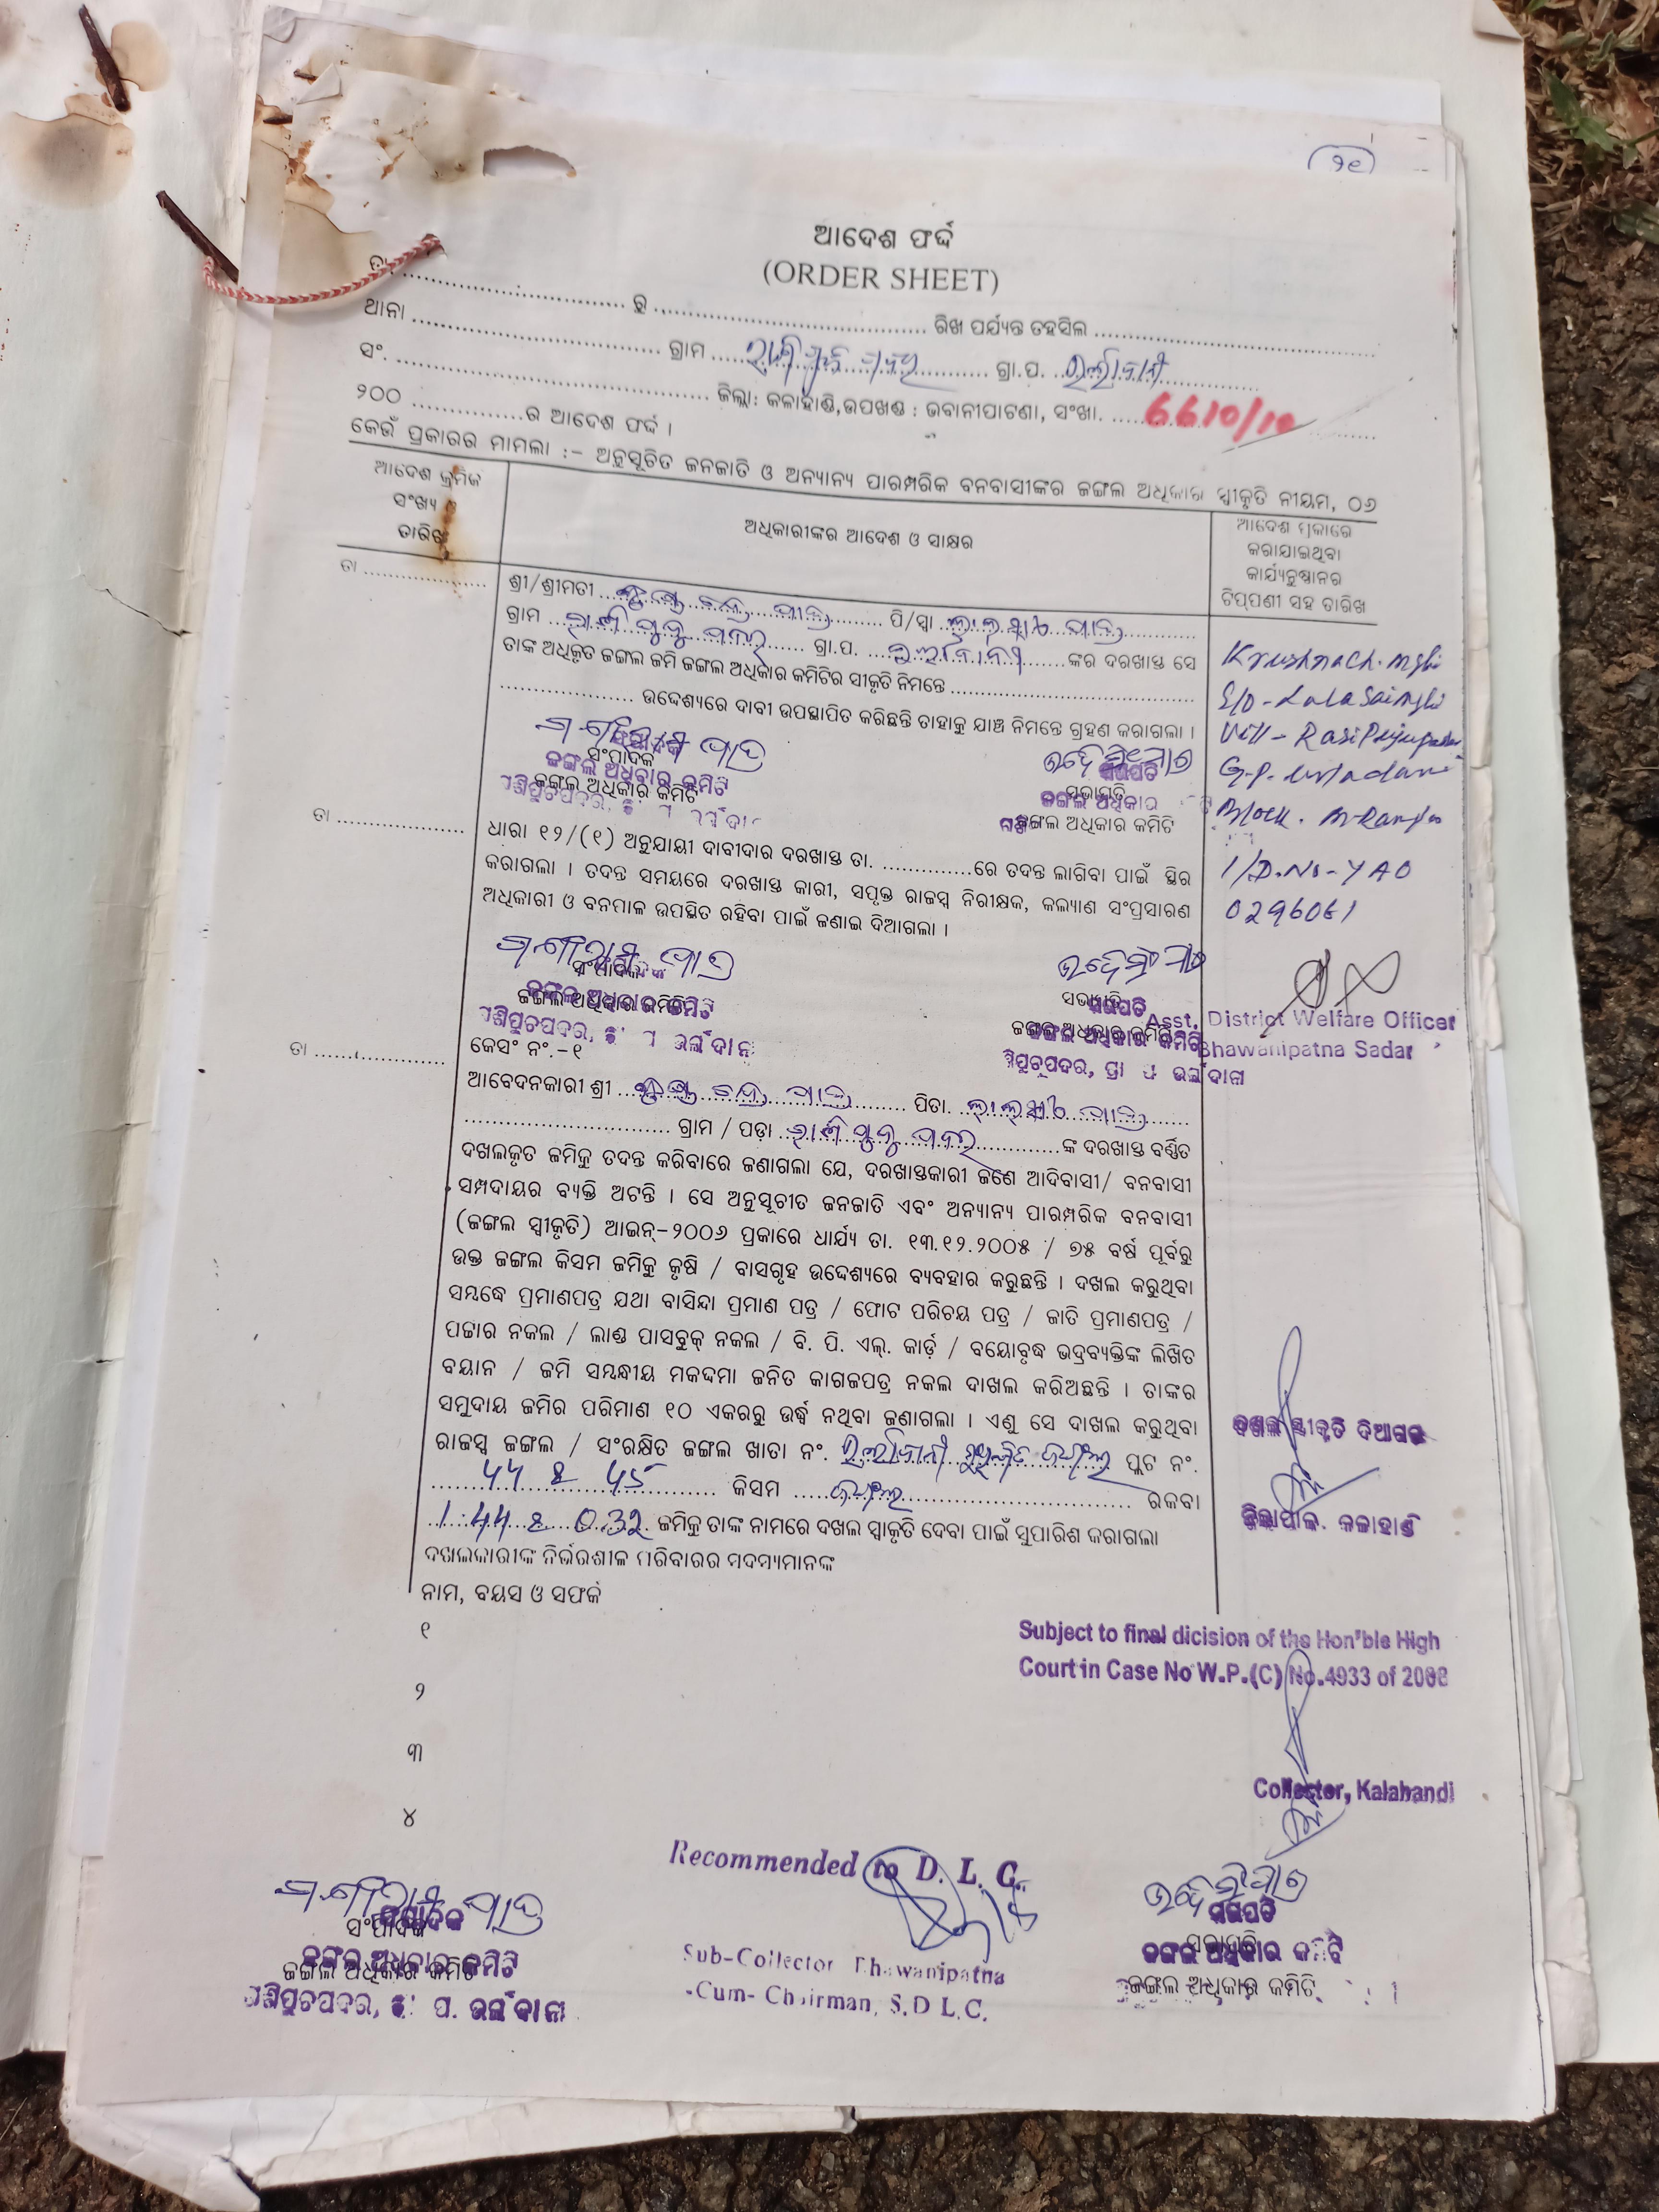 ୨୧
ଆଦେଶ ଫର୍ଦ୍ଦ
(ORDER SHEET)
ତା ............ ରୁ ............ ରିଖ ପର୍ଯ୍ୟନ୍ତ ତହସିଲ ............
ଥାନା ............ ଗ୍ରାମ ............ ଗ୍ରା.ପ. ଉର୍ଲାଦାନୀ
ସଂ. ............ ଜିଲ୍ଲା: କଳାହାଣ୍ଡି, ଉପଖଣ୍ଡ : ଭବାନୀପାଟଣା, ସଂଖା. .... 6610/10
୨୦୦ ............ ର ଆଦେଶ ଫର୍ଦ୍ଦ ।
କେଉଁ ପ୍ରକାରର ମାମଲା :- ଅନୁସୂଚିତ ଜନଜାତି ଓ ଅନ୍ୟାନ୍ୟ ପାରମ୍ପରିକ ବନବାସୀଙ୍କର ଜଙ୍ଗଲ ଅଧିକାର ସ୍ୱୀକୃତି ନୀୟମ, ୦୬
ଆଦେଶ କ୍ରମିକ
ସଂଖ୍ୟ ଓ
ତାରିଖ
ଅଧିକାରୀଙ୍କର ଆଦେଶ ଓ ସାକ୍ଷର
ଆଦେଶ ପ୍ରକାରେ
କରାଯାଇଥିବା
କାର୍ଯ୍ୟନୁଷ୍ଠାନର
ଟିପ୍ପଣୀ ସହ ତାରିଖ
ତା ............
ଶ୍ରୀ/ଶ୍ରୀମତୀ କୃଷ୍ଣ ଚନ୍ଦ୍ର ମାଝୀ ପି/ସ୍ୱା ଲାଲସାଏ ମାଝୀ
ଗ୍ରାମ ରାଶିପୁଜୁ ପଦର ଗ୍ରା.ପ. ଉର୍ଲାଦାନୀ ଙ୍କର ଦରଖାସ୍ତ ସେ
ତାଙ୍କ ଅଧିକୃତ ଜଙ୍ଗଲ ଜମି ଜଙ୍ଗଲ ଅଧିକାର କମିଟିର ସୀକୃତି ନିମନ୍ତେ ............
............ ଉଦ୍ଦେଶ୍ୟରେ ଦାବୀ ଉପସ୍ଥାପିତ କରିଛନ୍ତି ତାହାକୁ ଯାଞ୍ଚ ନିମନ୍ତେ ଗ୍ରହଣ କରାଗଲା ।
Krushna Ch. Majhi
S/O - Lala Sai Majhi
Vill - Rasipujupadar
G.P. Urladani
Block. M. Rampur
I/D. No - YAO
0296061
ସଂପାଦକ
ଜଙ୍ଗଲ ଅଧିକାର କମିଟି
ସଭାପତି
ଜଙ୍ଗଲ ଅଧିକାର କମିଟି
ତା ............
ଧାରା ୧୨/(୧) ଅନୁଯାୟୀ ଦାବୀଦାର ଦରଖାସ୍ତ ତା. ............ ରେ ତଦନ୍ତ ଲାଗିବା ପାଇଁ ସ୍ଥିର
କରାଗଲା । ତଦନ୍ତ ସମୟରେ ଦରଖାସ୍ତ କାରୀ, ସପୃକ୍ତ ରାଜସ୍ୱ ନିରୀକ୍ଷକ, କଲ୍ୟାଣ ସଂପ୍ରସାରଣ
ଅଧିକାରୀ ଓ ବନପାଳ ଉପସ୍ଥିତ ରହିବା ପାଇଁ ଜଣାଇ ଦିଆଗଲା ।
ସଂପାଦକ
ଜଙ୍ଗଲ ଅଧିକାର କମିଟି
ସଭାପତି
ଜଙ୍ଗଲ ଅଧିକାର କମିଟି
Asst. District Welfare Officer
Bhawanipatna Sadar
ତା ............
କେସଂ ନଂ.-୧
ଆବେଦନକାରୀ ଶ୍ରୀ କୃଷ୍ଣ ଚନ୍ଦ୍ର ମାଝୀ ପିତା. ଲାଲସାଏ ମାଝୀ
............ ଗ୍ରାମ / ପଡ଼ା ରାଶିପୁଜୁ ପଦର ଙ୍କ ଦରଖାସ୍ତ ବର୍ଣ୍ଣିତ
ଦଖଲକୃତ ଜମିକୁ ତଦନ୍ତ କରିବାରେ ଜଣାଗଲା ଯେ, ଦରଖାସ୍ତକାରୀ ଜଣେ ଆଦିବାସୀ/ ବନବାସୀ
ସମ୍ପଦାୟର ବ୍ୟକ୍ତି ଅଟନ୍ତି । ସେ ଅନୁସୂଚୀତ ଜନଜାତି ଏବଂ ଅନ୍ୟାନ୍ୟ ପାରମ୍ପରିକ ବନବାସୀ
(ଜଙ୍ଗଲ ସ୍ୱୀକୃତି) ଆଇନ୍-୨୦୦୬ ପ୍ରକାରେ ଧାର୍ଯ୍ୟ ତା. ୧୩.୧୨.୨୦୦୫ / ୭୫ ବର୍ଷ ପୂର୍ବରୁ
ଉକ୍ତ ଜଙ୍ଗଲ କିସମ ଜମିକୁ କୃଷି / ବାସଗୃହ ଉଦ୍ଦେଶ୍ୟରେ ବ୍ୟବହାର କରୁଛନ୍ତି । ଦଖଲ କରୁଥିବା
ସମ୍ଭଦ୍ଧେ ପ୍ରମାଣପତ୍ର ଯଥା ବାସିନ୍ଦା ପ୍ରମାଣ ପତ୍ର / ଫୋଟ ପରିଚୟ ପତ୍ର / ଜାତି ପ୍ରମାଣପତ୍ର /
ପଟ୍ଟାର ନକଲ / ଲାଣ୍ଡ ପାସବୁକ୍ ନକଲ / ବି. ପି. ଏଲ୍. କାର୍ଡ଼ / ବୟୋବୃଦ୍ଧ ଭଦ୍ରବ୍ୟକ୍ତିଙ୍କ ଲିଖିତ
ବୟାନ / ଜମି ସମ୍ଭନ୍ଧୀୟ ମକଦ୍ଦମା ଜନିତ କାଗଜପତ୍ର ନକଲ ଦାଖଲ କରିଅଛନ୍ତି । ତାଙ୍କର
ସମୁଦାୟ ଜମିର ପରିମାଣ ୧୦ ଏକରରୁ ଉର୍ଦ୍ଧ୍ୱ ନଥିବା ଜଣାଗଲା । ଏଣୁ ସେ ଦାଖଲ କରୁଥିବା
ରାଜସ୍ୱ ଜଙ୍ଗଲ / ସଂରକ୍ଷିତ ଜଙ୍ଗଲ ଖାତା ନଂ. ଉର୍ଲାଦାନୀ ............ ଜଙ୍ଗଲ ପ୍ଲଟ ନଂ.
44 & 45 କିସମ ଜଙ୍ଗଲ ରକବା
1.44 & 0.32 ଜମିକୁ ତାଙ୍କ ନାମରେ ଦଖଲ ସ୍ୱୀକୃତି ଦେବା ପାଇଁ ସୁପାରିଶ କରାଗଲା
ଦଖଲକାରୀଙ୍କ ନିର୍ଭରଶୀଳ ପରିବାରର ସଦସ୍ୟମାନଙ୍କ
ନାମ, ବୟସ ଓ ସଫର୍କ
ଦଖଲ ସ୍ୱୀକୃତି ଦିଆଗଲା
ଜିଲ୍ଲାପାଳ. କଳାହାଣ୍ଡି
୧
୨
୩
୪
Subject to final dicision of the Hon'ble High
Court in Case No W.P.(C) No.4933 of 2008
Collector, Kalahandi
Recommended to D. L. C.
Sub-Collector Bhawanipatna
-Cum- Chairman, S.D L.C.
ସଂପାଦକ
ଜଙ୍ଗଲ ଅଧିକାର କମିଟି
ସଭାପତି
ଜଙ୍ଗଲ ଅଧିକାର କମିଟି